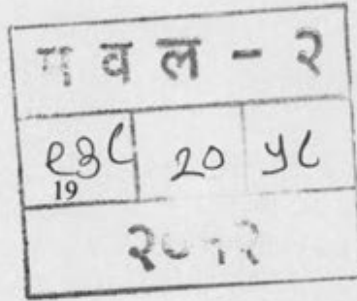 मवल - २
९३८ 20 ५८
19
२०१२